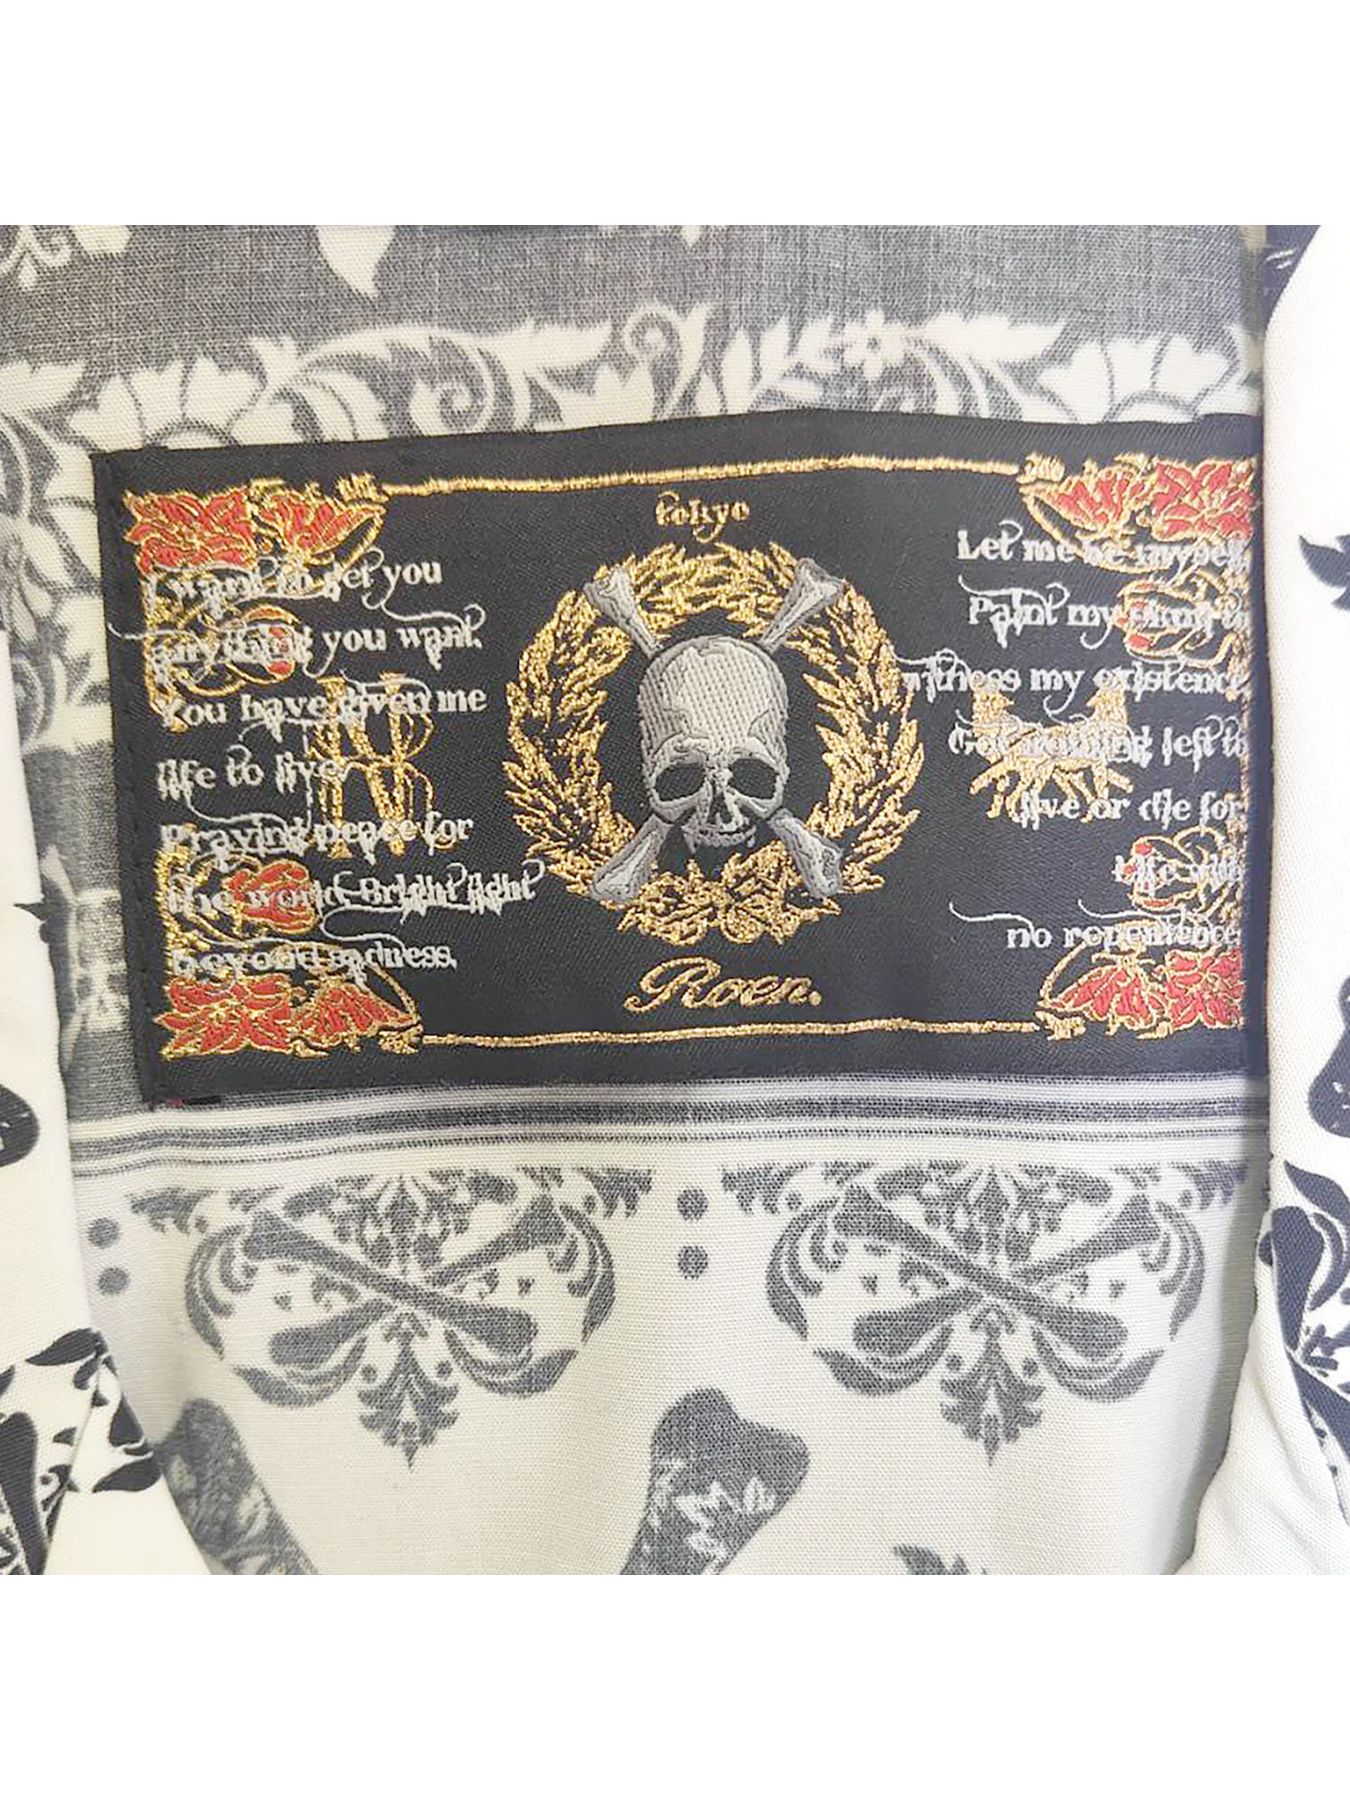 tokyo
I want to get you
anything you want.
You have given me
life to live.
Praying peace for
the world. Bright light
beyond sadness.
Let me be myself.
Paint my
witness my existence
Got nothing left to
live or die for
Life with
no repentence.
Roen.